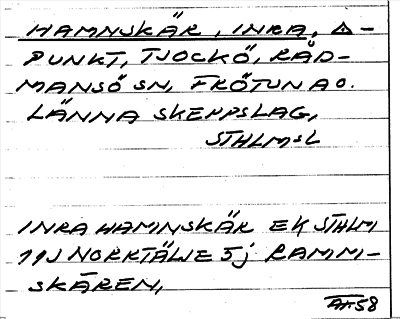 HAMNSKÄR, INRA, Δ-
PUNKT, TJOCKÖ, RÅD-
MANSÖ SN, FRÖTUNA O.
LÄNNA SKEPPSLAG,
STHLMSL
INRA HAMNSKÄR EK STHLM
11J NORRTÄLJE 5j RAMM-
SKÄREN,
AF58